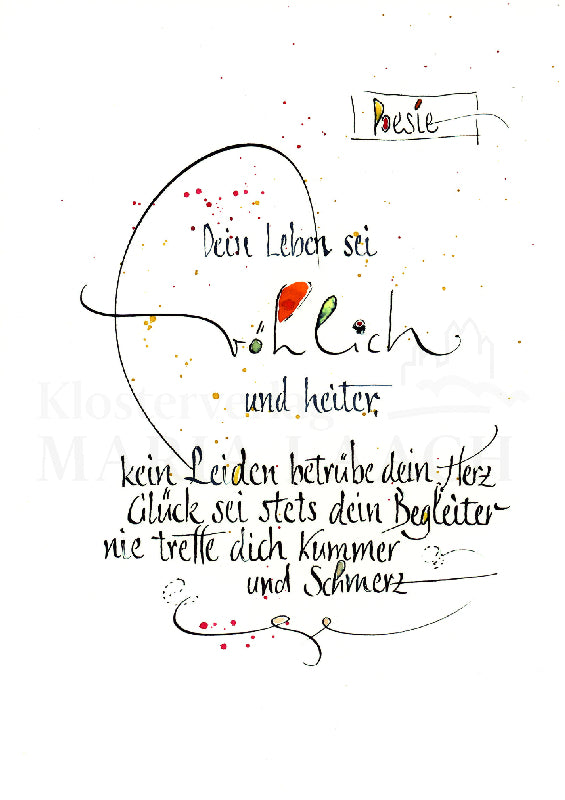 Poesie
Dein Leben sei
fröhlich
und heiter,
kein Leiden betrübe dein Herz
Glück sei stets dein Begleiter
nie treffe dich Kummer
und Schmerz
Klosterverlag
MARIA LAACH